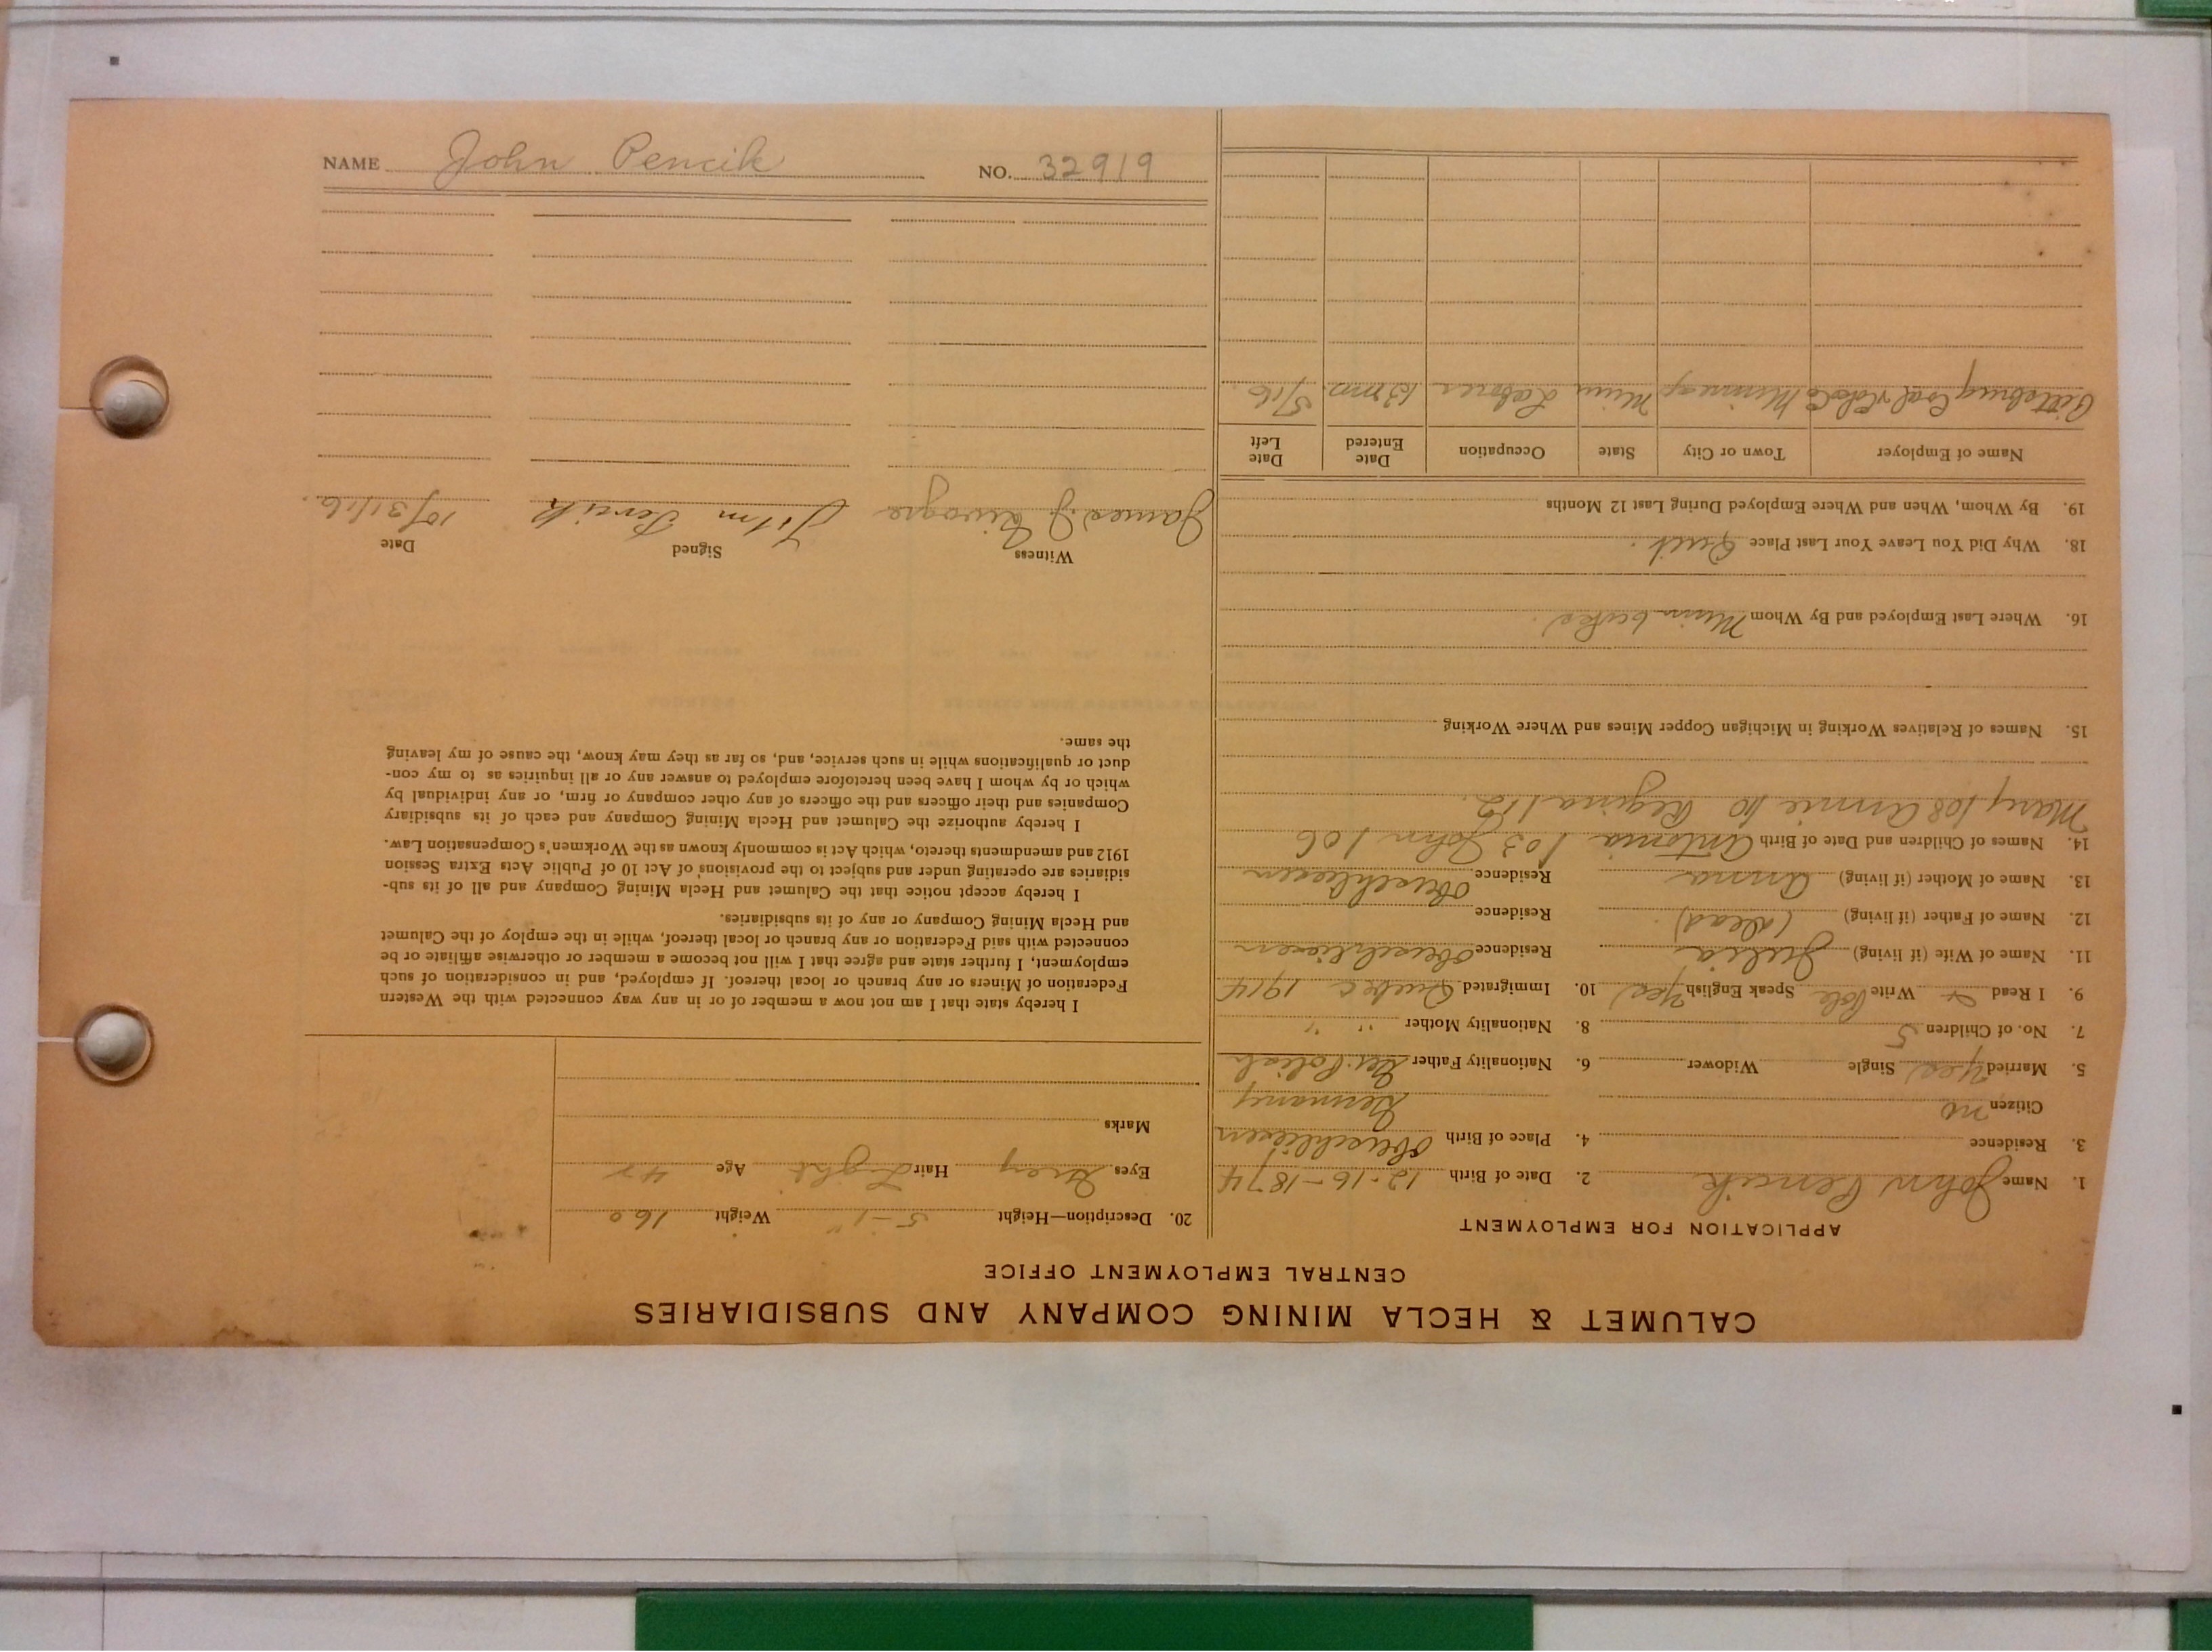 NAME John Pencik NO. 32919
CALUMET & HECLA MINING COMPANY AND SUBSIDIARIES
CENTRAL EMPLOYMENT OFFICE
APPLICATION FOR EMPLOYMENT
1. Name John Pencik 2. Date of Birth 12-16-1874
3. Residence 4. Place of Birth
Citizen no Germany
5. Married yes Single Widower 6. Nationality Father Polish
7. No. of Children 5 8. Nationality Mother " "
9. I Read & Write Pole Speak English yes 10. Immigrated Quebec 1914
11. Name of Wife (if living) Julia Residence
12. Name of Father (if living) (dead) Residence
13. Name of Mother (if living) Anna Residence
14. Names of Children and Date of Birth Antonia 1 03 John 1 06
Mary 1 08 Annie 10 Regina 1 12.
15. Names of Relatives Working in Michigan Copper Mines and Where Working
16. Where Last Employed and By Whom
18. Why Did You Leave Your Last Place Quit.
19. By Whom, When and Where Employed During Last 12 Months
Name of Employer Town or City State Occupation Date Entered Date Left
Pittsburg Coal Minneap Minn Laborer 13 mos. 5/16
20. Description—Height 5-1" Weight 160
Eyes Grey Hair Light Age 42
Marks
I hereby state that I am not now a member of or in any way connected with the Western
Federation of Miners or any branch or local thereof. If employed, and in consideration of such
employment, I further state and agree that I will not become a member or otherwise affiliate or be
connected with said Federation or any branch or local thereof, while in the employ of the Calumet
and Hecla Mining Company or any of its subsidiaries.
I hereby accept notice that the Calumet and Hecla Mining Company and all of its sub-
sidiaries are operating under and subject to the provisions of Act 10 of Public Acts Extra Session
1912 and amendments thereto, which Act is commonly known as the Workmen's Compensation Law.
I hereby authorize the Calumet and Hecla Mining Company and each of its subsidiary
Companies and their officers and the officers of any other company or firm, or any individual by
which or by whom I have been heretofore employed to answer any or all inquiries as to my con-
duct or qualifications while in such service, and, so far as they may know, the cause of my leaving
the same.
Witness Signed Date
James J. Pencik 10/31/16.